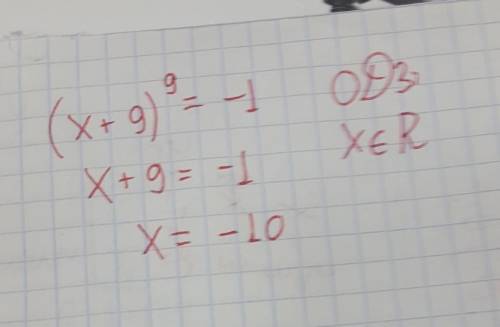 (x + 9)⁹ = -1
x + 9 = -1
x = -10
ОДЗ:
x ∈ R